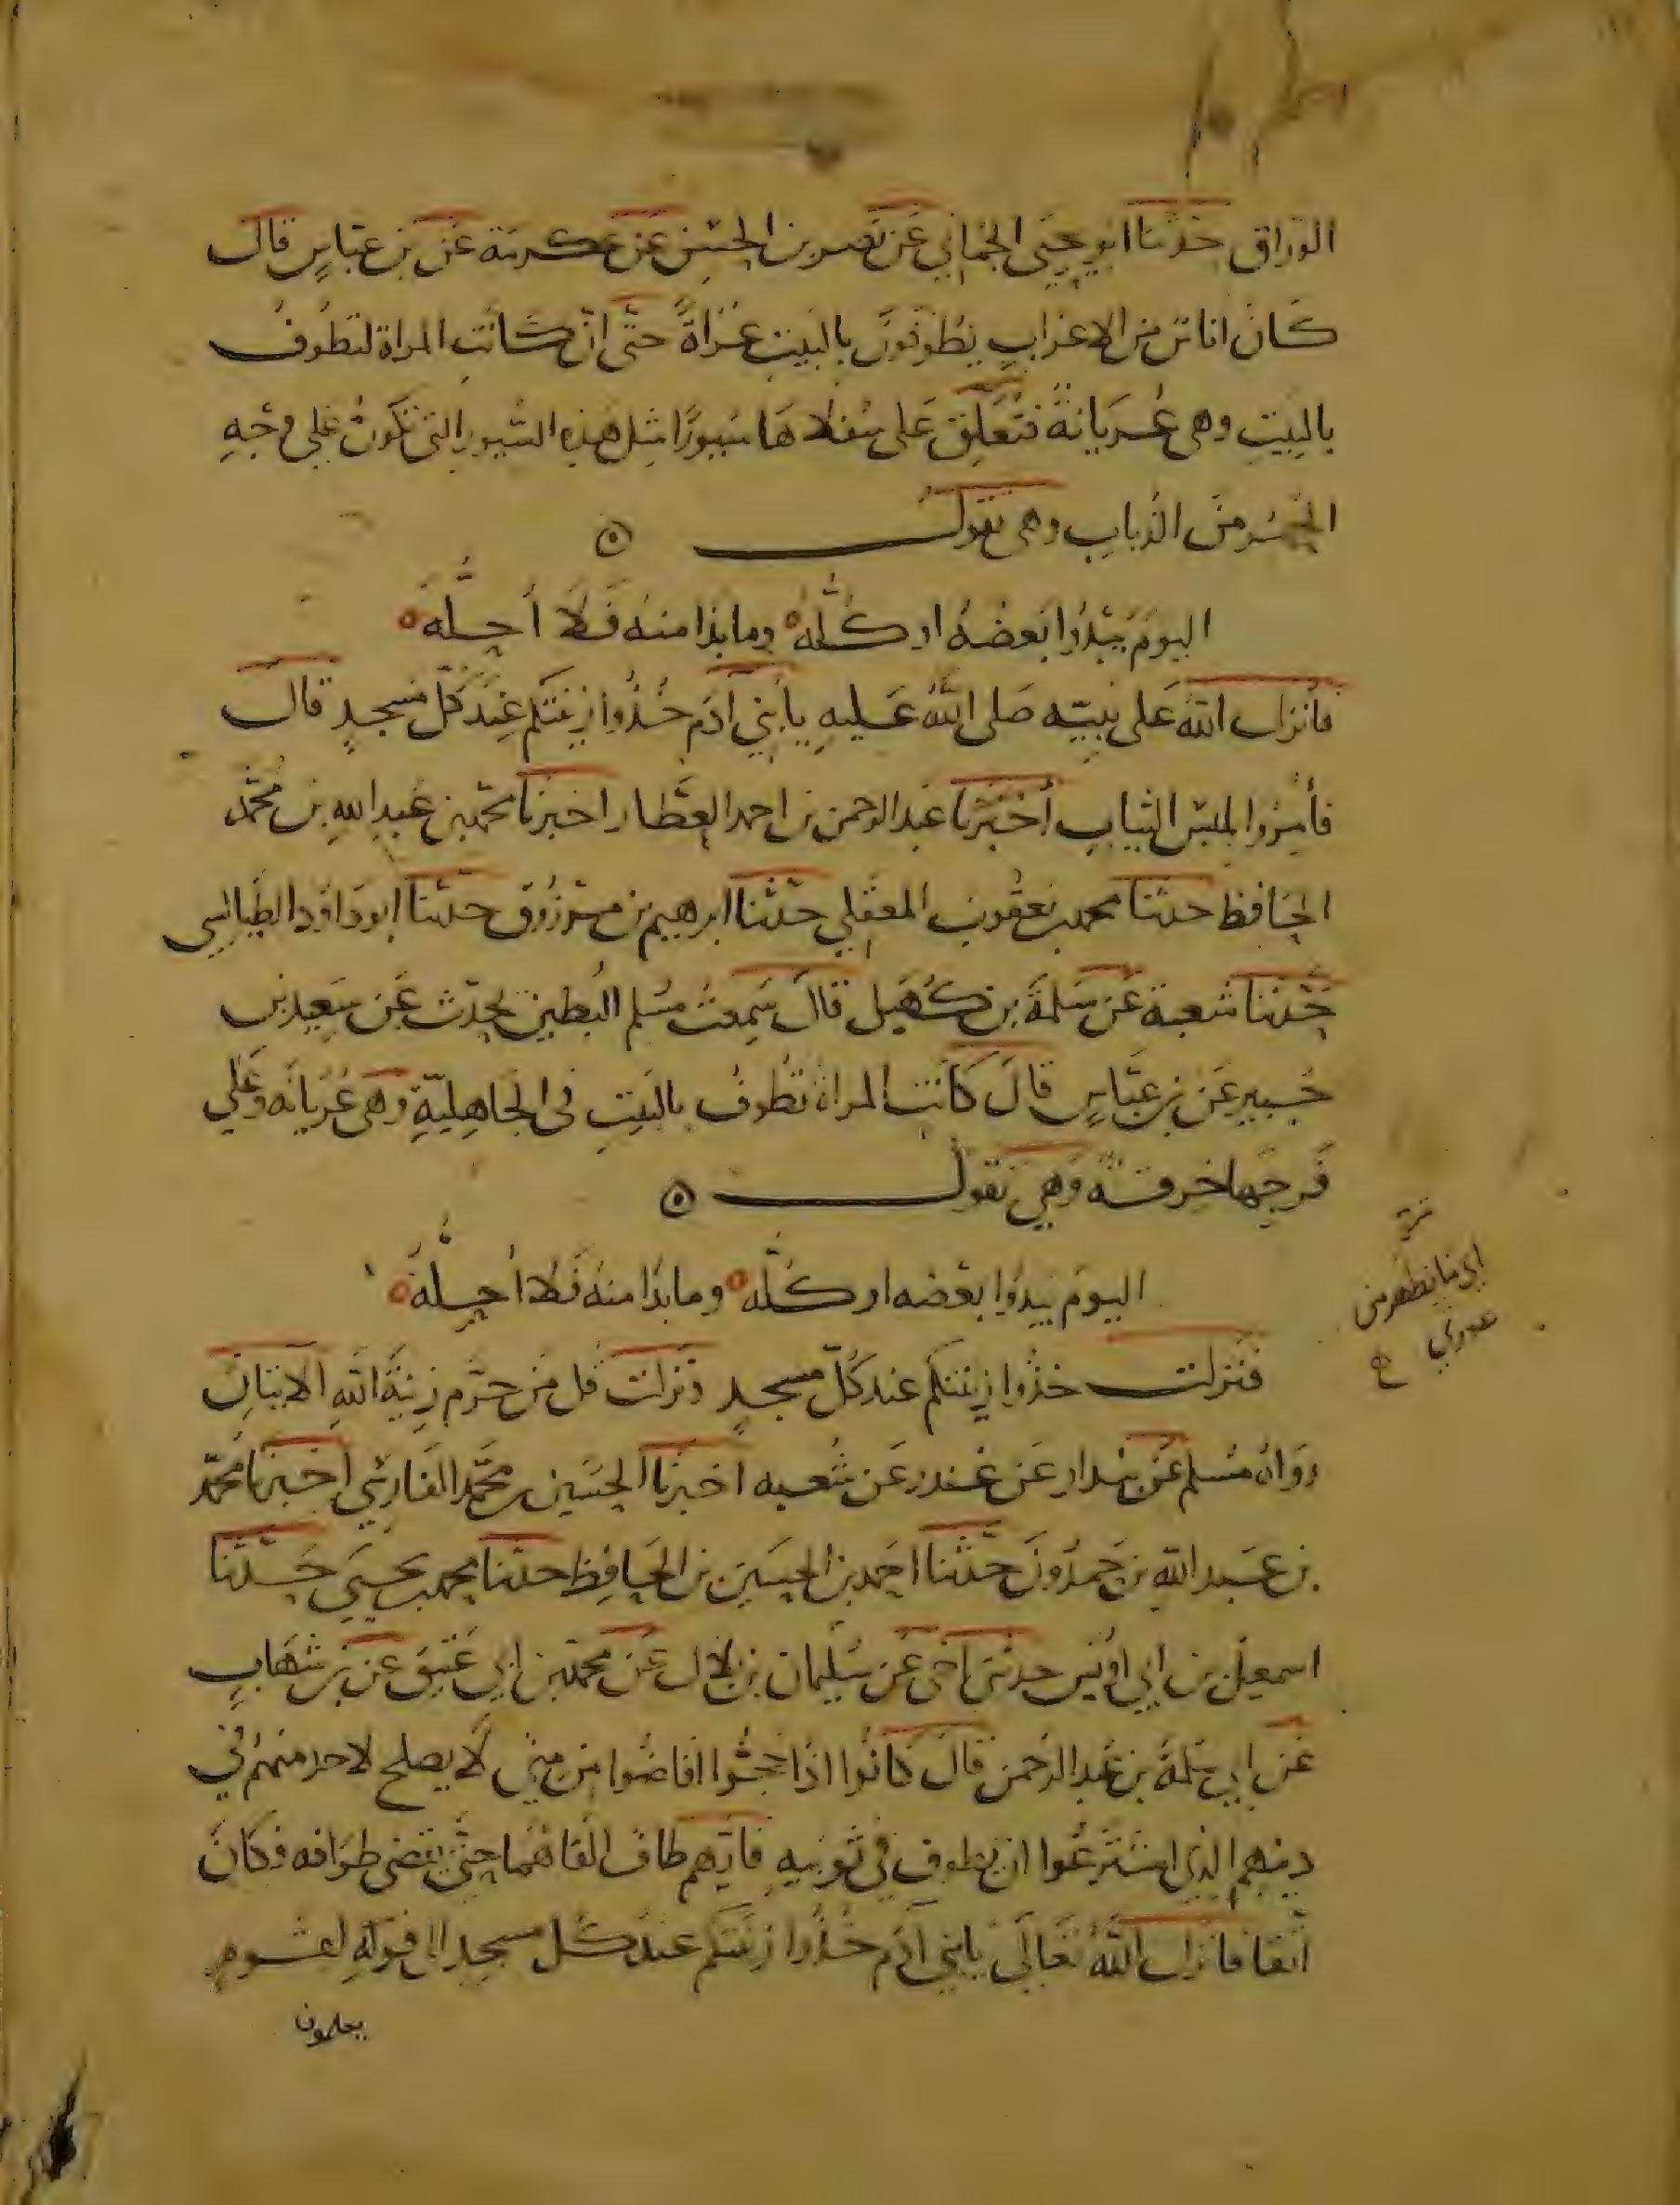 الوراق حدثنا ابو يحيى الحماني عن نصر بن الحسن عن عكرمة عن بن عباس قال
كان اناس من الاعراب يطوفون بالبيت عراة حتى ان كانت المراة لتطوف
بالبيت وهى عريانة فتعلق على سفلاها سيورا مثل هذه السيور التى تكون على وجه
الحمر من الذباب وهى تقول
اليوم يبدوا بعضه او كله وما بدا منه فلا أحله
فأنزل الله على نبيه صلى الله عليه يا بني آدم خذوا زينتكم عند كل مسجد قال
فأمروا بلبس الثياب أخبرنا عبد الرحمن بن احمد العطار اخبرنا محمد بن عبد الله بن محمد
الحافظ حدثنا محمد بن يعقوب المعقلي حدثنا ابرهيم بن مرزوق حدثنا ابو داود الطيالسى
حدثنا شعبة عن سلمة بن كهيل قال سمعت مسلم البطين يحدث عن سعيد بن
جبير عن بن عباس قال كانت المراة تطوف بالبيت فى الجاهلية وهى عريانه وعلى
فرجها خرقة وهي تقول
اليوم يبدوا بعضه او كله وما بدا منه فلا أحله
فنزلت خذوا زينتكم عند كل مسجد ونزلت قل من حرم زينة الله الايتان
رواه مسلم عن بندار عن غندر عن شعبه اخبرنا الحسين بن محمد الفارسي اخبرنا محمد
بن عبد الله بن حمدون حدثنا احمد بن الحسين بن الحافظ حدثنا محمد بن يحيى حدثنا
اسمعيل بن ابي اويس حدثنى اخى عن سليمان بن بلال عن محمد بن ابي عتيق عن بن شهاب
عن ابي سلمة بن عبد الرحمن قال كانوا اذا حجوا افاضوا من منى لا يصلح لاحد منهم في
دينهم الذي اشترعوا ان يطوف في ثوبيه فايهم طاف القاهما حتى يقضى طوافه وكان
اتقا فانزل الله تعالى يابني آدم خذوا زينتكم عند كل مسجد الى قوله لقوم
يعلمون
اي ما يظهر من
عورتي